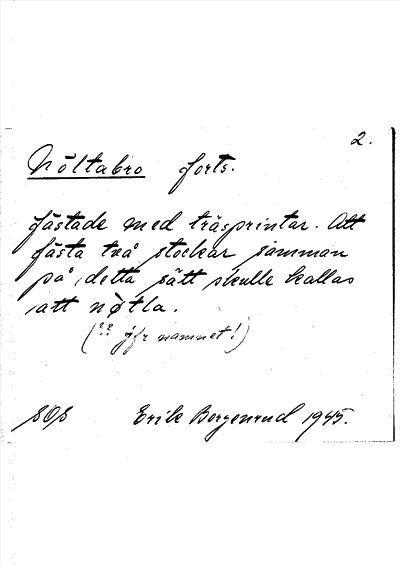 2.
Nöltabro forts.
fästade med träsprintar. Att
fästa två stockar samman
på detta sätt skulle kallas
att nòtla.
(?? jfr namnet!)
SOS Erik Borgenrud 1945.